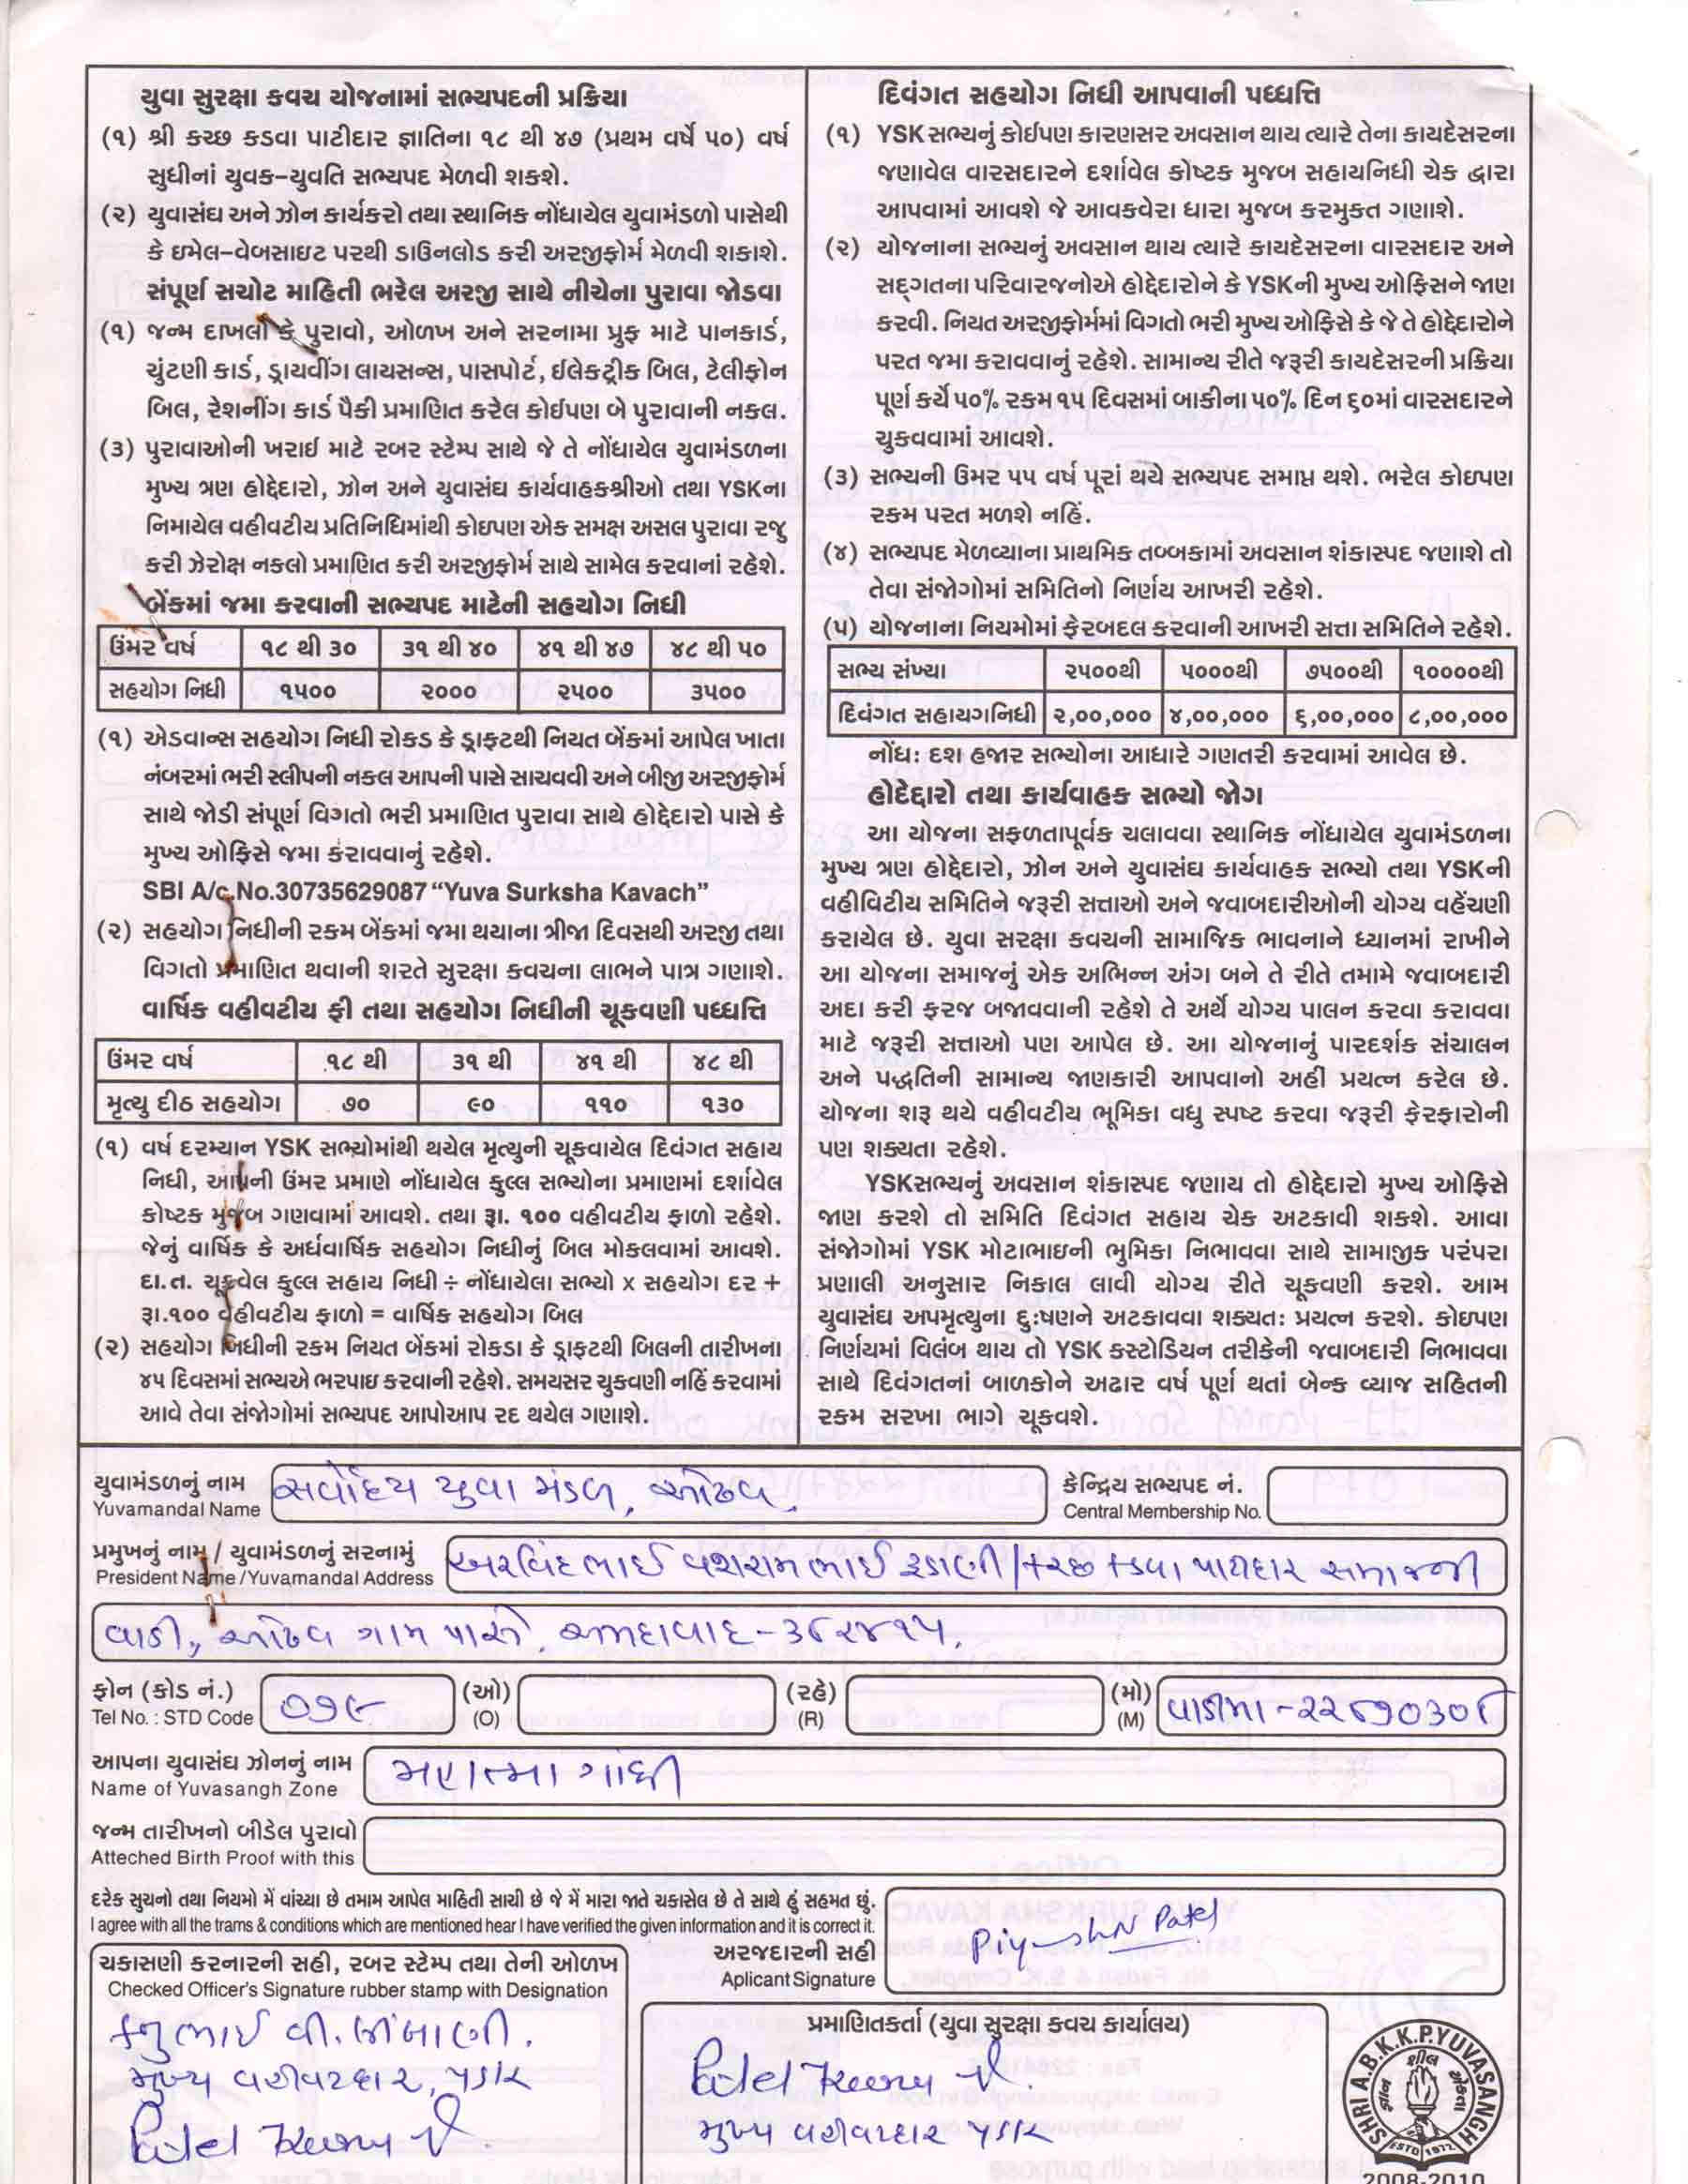 યુવા સુરક્ષા કવચ યોજનામાં સભ્યપદની પ્રક્રિયા
(૧) શ્રી કચ્છ કડવા પાટીદાર જ્ઞાતિના ૧૮ થી ૪૭ (પ્રથમ વર્ષે ૫૦) વર્ષ
સુધીનાં યુવક-યુવતિ સભ્યપદ મેળવી શકશે.
(૨) યુવાસંઘ અને ઝોન કાર્યકરો તથા સ્થાનિક નોંધાયેલ યુવામંડળો પાસેથી
કે ઇમેલ-વેબસાઇટ પરથી ડાઉનલોડ કરી અરજીફોર્મ મેળવી શકાશે.
સંપૂર્ણ સચોટ માહિતી ભરેલ અરજી સાથે નીચેના પુરાવા જોડવા
(૧) જન્મ દાખલો કે પુરાવો, ઓળખ અને સરનામા પ્રુફ માટે પાનકાર્ડ,
ચુંટણી કાર્ડ, ડ્રાયવીંગ લાયસન્સ, પાસપોર્ટ, ઈલેક્ટ્રીક બિલ, ટેલીફોન
બિલ, રેશનીંગ કાર્ડ પૈકી પ્રમાણિત કરેલ કોઈપણ બે પુરાવાની નકલ.
(૩) પુરાવાઓની ખરાઈ માટે રબર સ્ટેમ્પ સાથે જે તે નોંધાયેલ યુવામંડળના
મુખ્ય ત્રણ હોદ્દેદારો, ઝોન અને યુવાસંઘ કાર્યવાહકશ્રીઓ તથા YSKના
નિમાયેલ વહીવટીય પ્રતિનિધિમાંથી કોઇપણ એક સમક્ષ અસલ પુરાવા રજુ
કરી ઝેરોક્ષ નકલો પ્રમાણિત કરી અરજીફોર્મ સાથે સામેલ કરવાનાં રહેશે.
બેંકમાં જમા કરવાની સભ્યપદ માટેની સહયોગ નિધી
ઉંમર વર્ષ ૧૮ થી ૩૦ ૩૧ થી ૪૦ ૪૧ થી ૪૭ ૪૮ થી ૫૦
સહયોગ નિધી ૧૫૦૦ ૨૦૦૦ ૨૫૦૦ ૩૫૦૦
(૧) એડવાન્સ સહયોગ નિધી રોકડ કે ડ્રાફટથી નિયત બેંકમાં આપેલ ખાતા
નંબરમાં ભરી સ્લીપની નકલ આપની પાસે સાચવવી અને બીજી અરજીફોર્મ
સાથે જોડી સંપૂર્ણ વિગતો ભરી પ્રમાણિત પુરાવા સાથે હોદ્દેદારો પાસે કે
મુખ્ય ઓફિસે જમા કરાવવાનું રહેશે.
SBI A/c.No.30735629087 “Yuva Surksha Kavach”
(૨) સહયોગ નિધીની રકમ બેંકમાં જમા થયાના ત્રીજા દિવસથી અરજી તથા
વિગતો પ્રમાણિત થવાની શરતે સુરક્ષા કવચના લાભને પાત્ર ગણાશે.
વાર્ષિક વહીવટીય ફી તથા સહયોગ નિધીની ચૂકવણી પધ્ધતિ
ઉંમર વર્ષ ૧૮ થી ૩૧ થી ૪૧ થી ૪૮ થી
મૃત્યુ દીઠ સહયોગ ૭૦ ૯૦ ૧૧૦ ૧૩૦
(૧) વર્ષ દરમ્યાન YSK સભ્યોમાંથી થયેલ મૃત્યુની ચૂકવાયેલ દિવંગત સહાય
નિધી, આપની ઉંમર પ્રમાણે નોંધાયેલ કુલ્લ સભ્યોના પ્રમાણમાં દર્શાવેલ
કોષ્ટક મુજબ ગણવામાં આવશે. તથા રૂા. ૧૦૦ વહીવટીય ફાળો રહેશે.
જેનું વાર્ષિક કે અર્ધવાર્ષિક સહયોગ નિધીનું બિલ મોકલવામાં આવશે.
દા.ત. ચૂકવેલ કુલ્લ સહાય નિધી ÷ નોંધાયેલા સભ્યો x સહયોગ દર +
રૂા.૧૦૦ વહીવટીય ફાળો = વાર્ષિક સહયોગ બિલ
(૨) સહયોગ નિધીની રકમ નિયત બેંકમાં રોકડા કે ડ્રાફટથી બિલની તારીખના
૪૫ દિવસમાં સભ્યએ ભરપાઇ કરવાની રહેશે. સમયસર ચુકવણી નહિં કરવામાં
આવે તેવા સંજોગોમાં સભ્યપદ આપોઆપ રદ થયેલ ગણાશે.
દિવંગત સહયોગ નિધી આપવાની પધ્ધત્તિ
(૧) YSK સભ્યનું કોઈપણ કારણસર અવસાન થાય ત્યારે તેના કાયદેસરના
જણાવેલ વારસદારને દર્શાવેલ કોષ્ટક મુજબ સહાયનિધી ચેક દ્વારા
આપવામાં આવશે જે આવકવેરા ધારા મુજબ કરમુક્ત ગણાશે.
(૨) યોજનાના સભ્યનું અવસાન થાય ત્યારે કાયદેસરના વારસદાર અને
સદ્ગતના પરિવારજનોએ હોદ્દેદારોને કે YSKની મુખ્ય ઓફિસને જાણ
કરવી. નિયત અરજીફોર્મમાં વિગતો ભરી મુખ્ય ઓફિસે કે જે તે હોદ્દેદારોને
પરત જમા કરાવવાનું રહેશે. સામાન્ય રીતે જરૂરી કાયદેસરની પ્રક્રિયા
પૂર્ણ કર્યે ૫૦% રકમ ૧૫ દિવસમાં બાકીના ૫૦% દિન ૬૦માં વારસદારને
ચુકવવામાં આવશે.
(૩) સભ્યની ઉમર ૫૫ વર્ષ પૂરાં થયે સભ્યપદ સમાપ્ત થશે. ભરેલ કોઇપણ
રકમ પરત મળશે નહિં.
(૪) સભ્યપદ મેળવ્યાના પ્રાથમિક તબ્બકામાં અવસાન શંકાસ્પદ જણાશે તો
તેવા સંજોગોમાં સમિતિનો નિર્ણય આખરી રહેશે.
(૫) યોજનાના નિયમોમાં ફેરબદલ કરવાની આખરી સત્તા સમિતિને રહેશે.
સભ્ય સંખ્યા ૨૫૦૦થી ૫૦૦૦થી ૭૫૦૦થી ૧૦૦૦૦થી
દિવંગત સહાયગનિધી ૨,૦૦,૦૦૦ ૪,૦૦,૦૦૦ ૬,૦૦,૦૦૦ ૮,૦૦,૦૦૦
નોંધ: દશ હજાર સભ્યોના આધારે ગણતરી કરવામાં આવેલ છે.
હોદેદ્દારો તથા કાર્યવાહક સભ્યો જોગ
આ યોજના સફળતાપૂર્વક ચલાવવા સ્થાનિક નોંધાયેલ યુવામંડળના
મુખ્ય ત્રણ હોદ્દેદારો, ઝોન અને યુવાસંઘ કાર્યવાહક સભ્યો તથા YSKની
વહીવિટીય સમિતિને જરૂરી સત્તાઓ અને જવાબદારીઓની યોગ્ય વહેંચણી
કરાયેલ છે. યુવા સરક્ષા કવચની સામાજિક ભાવનાને ધ્યાનમાં રાખીને
આ યોજના સમાજનું એક અભિન્ન અંગ બને તે રીતે તમામે જવાબદારી
અદા કરી ફરજ બજાવવાની રહેશે તે અર્થે યોગ્ય પાલન કરવા કરાવવા
માટે જરૂરી સત્તાઓ પણ આપેલ છે. આ યોજનાનું પારદર્શક સંચાલન
અને પદ્ધતિની સામાન્ય જાણકારી આપવાનો અહીં પ્રયત્ન કરેલ છે.
યોજના શરૂ થયે વહીવટીય ભૂમિકા વધુ સ્પષ્ટ કરવા જરૂરી ફેરફારોની
પણ શક્યતા રહેશે.
YSKસભ્યનું અવસાન શંકાસ્પદ જણાય તો હોદ્દેદારો મુખ્ય ઓફિસે
જાણ કરશે તો સમિતિ દિવંગત સહાય ચેક અટકાવી શકશે. આવા
સંજોગોમાં YSK મોટાભાઇની ભુમિકા નિભાવવા સાથે સામાજીક પરંપરા
પ્રણાલી અનુસાર નિકાલ લાવી યોગ્ય રીતે ચૂકવણી કરશે. આમ
યુવાસંઘ અપમૃત્યુના દુઃષણને અટકાવવા શક્યતઃ પ્રયત્ન કરશે. કોઇપણ
નિર્ણયમાં વિલંબ થાય તો YSK કસ્ટોડિયન તરીકેની જવાબદારી નિભાવવા
સાથે દિવંગતનાં બાળકોને અઢાર વર્ષ પૂર્ણ થતાં બેન્ક વ્યાજ સહિતની
રકમ સરખા ભાગે ચૂકવશે.
યુવામંડળનું નામ સર્વોદય યુવા મંડળ, ઓઢવ. કેન્દ્રિય સભ્યપદ નં.
Yuvamandal Name Central Membership No.
પ્રમુખનું નામ / યુવામંડળનું સરનામું અરવિંદભાઈ વશરામભાઈ રૂડાણી / કચ્છ કડવા પાટીદાર સમાજની
President Name /Yuvamandal Address
વાડી, ઓઢવ ગામ પાસે, અમદાવાદ-૩૮૨૪૧૫.
ફોન (કોડ નં.) ૦૭૯ (ઓ) (રહે) (મો) વાડીમા-૨૨૮૭૦૩૦૮
Tel No. : STD Code (O) (R) (M)
આપના યુવાસંઘ ઝોનનું નામ મહાત્મા ગાંધી
Name of Yuvasangh Zone
જન્મ તારીખનો બીડેલ પુરાવો
Atteched Birth Proof with this
દરેક સુચનો તથા નિયમો મેં વાંચ્યા છે તમામ આપેલ માહિતી સાચી છે જે મેં મારા જાતે ચકાસેલ છે તે સાથે હું સહમત છું.
I agree with all the trams & conditions which are mentioned hear I have verified the given information and it is correct it.
અરજદારની સહી Piyush N Patel
Aplicant Signature
ચકાસણી કરનારની સહી, રબર સ્ટેમ્પ તથા તેની ઓળખ
Checked Officer's Signature rubber stamp with Designation
કનુભાઈ વી. લીંબાણી.
મુખ્ય વહીવટદાર, પડાર
Patel
પ્રમાણિતકર્તા (યુવા સુરક્ષા કવચ કાર્યાલય)
Patel
મુખ્ય વહીવટદાર
SHRI A.B.K.K.P.YUVASANGH
શીલ
ESTD 1972
2008-2010